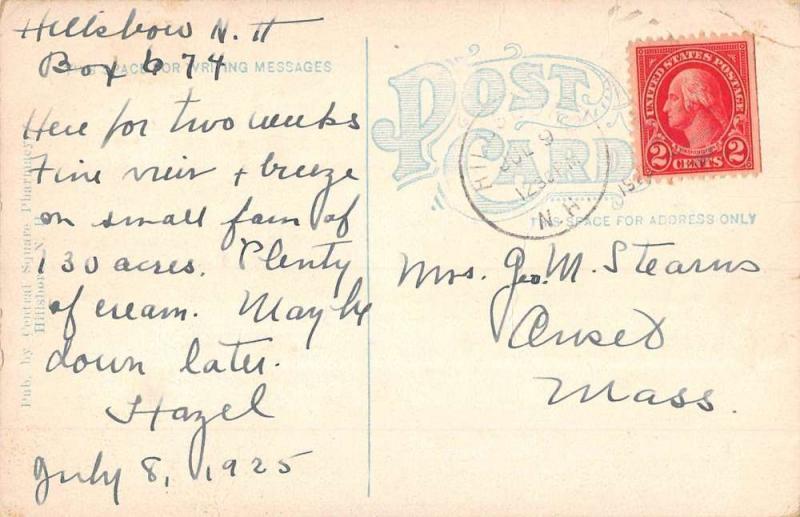 Hillsboro N. H
Box 674
THIS SPACE FOR WRITING MESSAGES
Here for two weeks
Fine view + breeze
on small farm of
130 acres. Plenty
of cream. Maybe
down later.
Hazel
July 8, 1925
Pub. by Central Square Pharmacy
Hillsboro, N. H.
POST
CARD
THIS SPACE FOR ADDRESS ONLY
JUL 9
12 30 PM
N.H.
UNITED STATES POSTAGE
WASHINGTON
2 CENTS 2
Mrs. Geo. M. Stearns
Onset
Mass.